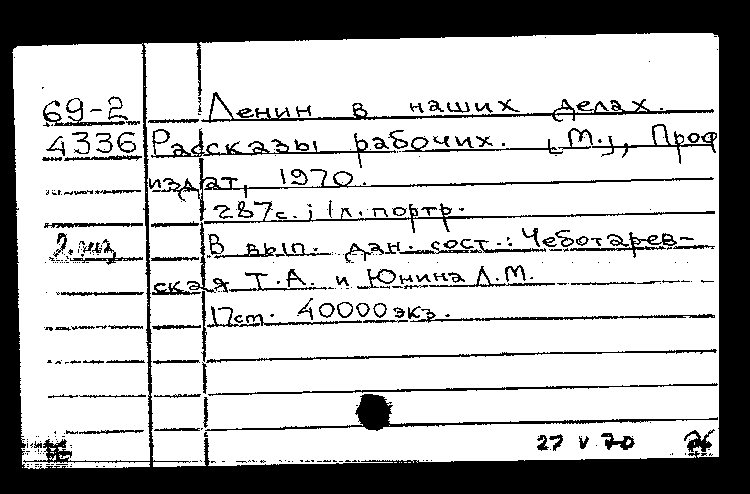 69-2 Ленин в наших делах.
4336 Рассказы рабочих. [М.], Проф
издат, 1970.
287с.; 1л. портр.
В вып. дан. сост.: Чеботарев-
ская Т.А. и Юнина Л.М.
17см. 40000экз.
27 V 70